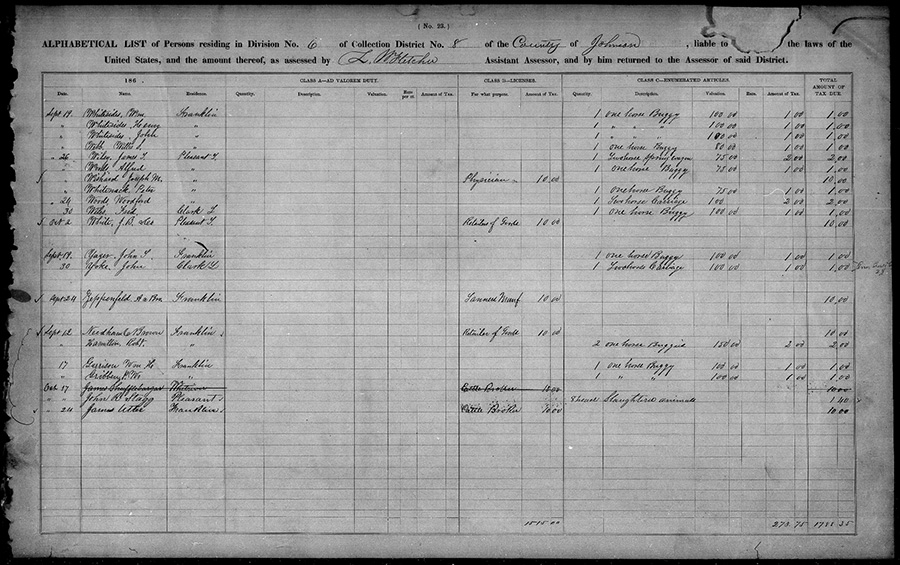 ( No. 23. )
ALPHABETICAL LIST of Persons residing in Division No. 6 of Collection District No. 8 of the County of Johnson, liable to the laws of the
United States, and the amount thereof, as assessed by Assistant Assessor, and by him returned to the Assessor of said District.
186 . CLASS A—AD VALOREM DUTY. CLASS B—LICENSES. CLASS C—ENUMERATED ARTICLES. TOTAL AMOUNT OF TAX DUE.
Date. Name. Residence. Quantity. Description. Valuation. Rate per ct. Amount of Tax. For what purpose. Amount of Tax. Quantity. Description. Valuation. Rate. Amount of Tax.
Sept 19. Whitesides, Wm Franklin 1 one horse Buggy 100 00 1 00 1,00
" Whitesides, Henry " 1 " " " 100 00 1 00 1,00
" Whitesides, John " 1 " " " 100 00 1 00 1,00
" Webb " 1 one horse Buggy 80 00 1 00 1,00
" 26 Wiley, James T. Pleasant T. 1 Two horse Spring wagon 75 00 2 00 2,00
" Alfred " 1 one horse Buggy 75 00 1 00 1,00
" Joseph M. " Physician 10 00 10,00
" Whitenack Peter " 1 one horse Buggy 75 00 1 00 1,00
" 24 Woods, Woodford " 1 Two horse Carriage 100 2 00 2,00
30 Clark T. 1 one horse Buggy 100 00 1 00 1,00
Oct 2 White, J. D. Pleasant T. Retailer of Goods 10 00 10,00
Sept 19. John T. Franklin 1 one horse Buggy 100 00 1 00 1,00
30 John Clark T. 1 Two horse Carriage 100 00 1 00 1,00
24 Zeppenfeld Franklin Tanners Manuf 10 00 10,00
Sept 12 Needham & Brown Franklin Retailer of Goods 10 00 10,00
" Hamilton Robt. " 2 one horse 150 00 2 00 2,00
17 Garrison Wm H. Franklin 1 one horse Buggy 100 00 1 00 1,00
" " 1 " " 100 00 1 00 1,00
Oct 17 James Shufflebarger Cattle Broker 10 00 10,00
" " John R. Stagg Pleasant 8 Slaughtered animals 1 40
" 24 James Utter Franklin Cattle Broker 10 00 10,00
1515 00 273 75 1788 35